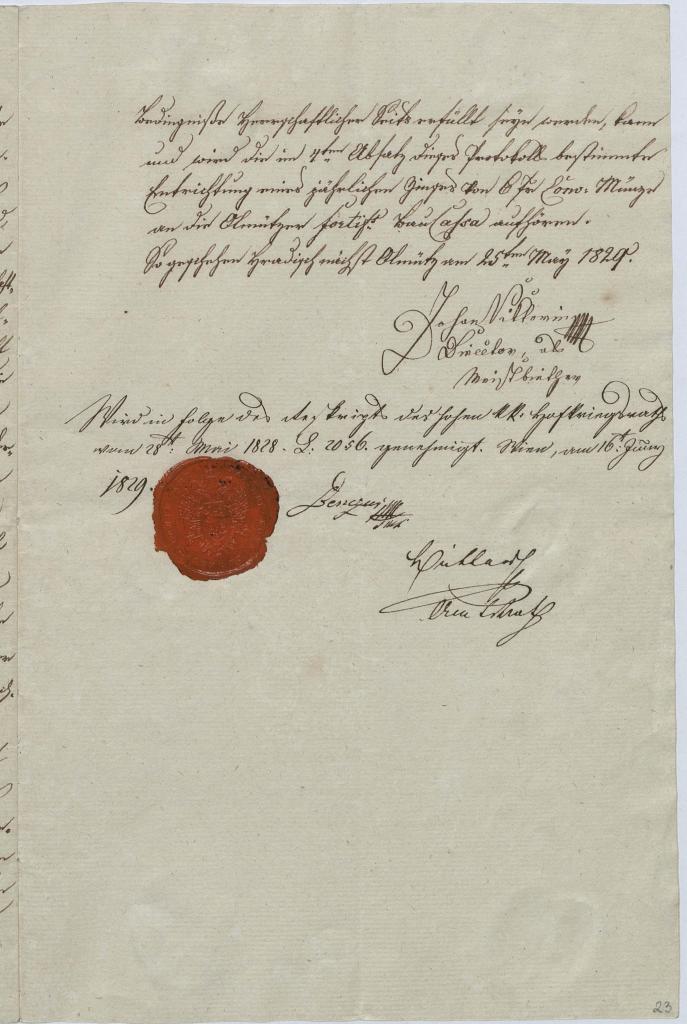 Bedingnisse Herrschaftlicher Seits erfüllt seyn werden, kann
und wird die im 4ten Absatz dieses Protokolls bestimmte
Entrichtung eines jährlichen Zinses von 6 Xr Conv: Münze
an die Olmützer fortifs. Bau Cassa aufhören.
So geschehen Hradisch nächst Olmütz am 25ten May 1829.
Johan
Director, als
Meistbiether
Wird in Folge des Reskripts des hohen kk. Hofkriegsraths
vom 28t: Mai 1828. L: 2056. genehmigt. Wien, am 16t Juny
1829.
23